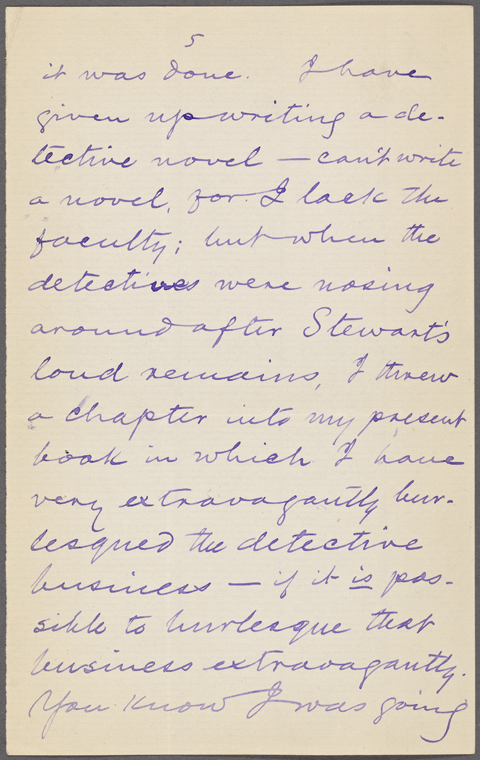 5
it was done. I have
given up writing a de-
tective novel — can't write
a novel, for I lack the
faculty; but when the
detectives were nosing
around after Stewart's
loud remains, I threw
a chapter into my present
book in which I have
very extravagantly bur-
lesqued the detective
business — if it is pos-
sible to burlesque that
business extravagantly.
You know I was going